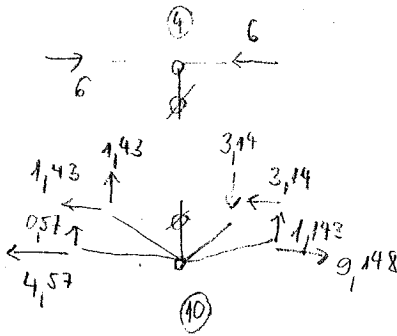 4
6
6
1,43
3,14
1,43
3,14
0,57
1,143
4,57
9,148
10